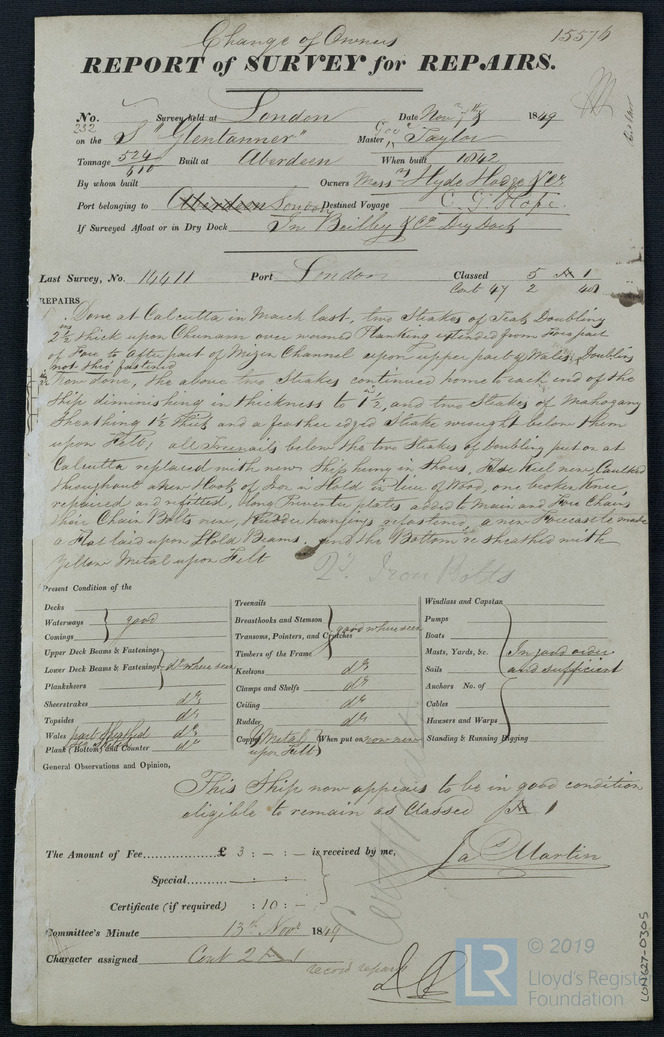 Change of Owners
15576
REPORT of SURVEY for REPAIRS.
No. 232 Survey held at London Date Novr 7th & 8 1849
on the S "Glentanner" Master Geo Taylor
Tonnage 524/610 Built at Aberdeen When built 1842
By whom built Owners Messrs Hyde Hodge & Co
Port belonging to Aberdeen London Destined Voyage C. G. Hope.
If Surveyed Afloat or in Dry Dock In Beilby & Co Dry Dock
Last Survey, No. 14411 Port London Classed 5 A 1
Cont 47 2
REPAIRS
Done at Calcutta in March last, two Strakes of Teak Doubling
2 1/2 ins thick upon Chunam over worned Planking extended from Fore part
of Fore to After part of Mizen Channel upon upper part of Wales, Doubling
not thro' fastened
Now done, the above two Strakes continued home to each end of the
Ship diminishing in thickness to 1 1/2, and two Strakes of Mahogany
Sheathing 1 1/2 thick and a feather edged Strake wrought below them
upon Felt; all Treenails below the two Strakes of Doubling put on at
Calcutta replaced with new Ship hung in Shores, False Keel new, Caulked
throughout a new Hook of Iron in Hold in lieu of Wood, one broken Knee
repaired and refitted, long Preventer plates added to Main and Fore Chains
their Chain Bolts new, Rudder hangings refastened, a new Forecastle made
a Flat laid upon Hold Beams. and the Bottom re sheathed with
Yellow Metal upon Felt
Iron Bolts
Present Condition of the
Decks
Waterways good
Comings
Upper Deck Beams & Fastenings
Lower Deck Beams & Fastenings do where seen
Planksheers
Sheerstrakes do
Topsides do
Wales part sheathed do
Plank (Bottom) and Counter do
Treenails
Breasthooks and Stemson good where seen
Transoms, Pointers, and Crutches
Timbers of the Frame
Keelsons do
Clamps and Shelfs do
Ceiling do
Rudder do
Copper Y Metal upon Felt When put on now new
Windlass and Capstan
Pumps
Boats
Masts, Yards, &c. In good order
Sails and sufficient
Anchors No. of
Cables
Hausers and Warps
Standing & Running Rigging
General Observations and Opinion,
This Ship now appears to be in good condition
eligible to remain as Classed A 1
The Amount of Fee £ 3 : - : - is received by me,
Special : :
Jas Martin
Certificate (if required) : 10 : -
Committee's Minute 13th Novr 1849
Character assigned Cont 2 A 1
record repairs
LON627-0305
LR
© 2019
Lloyd's Register
Foundation